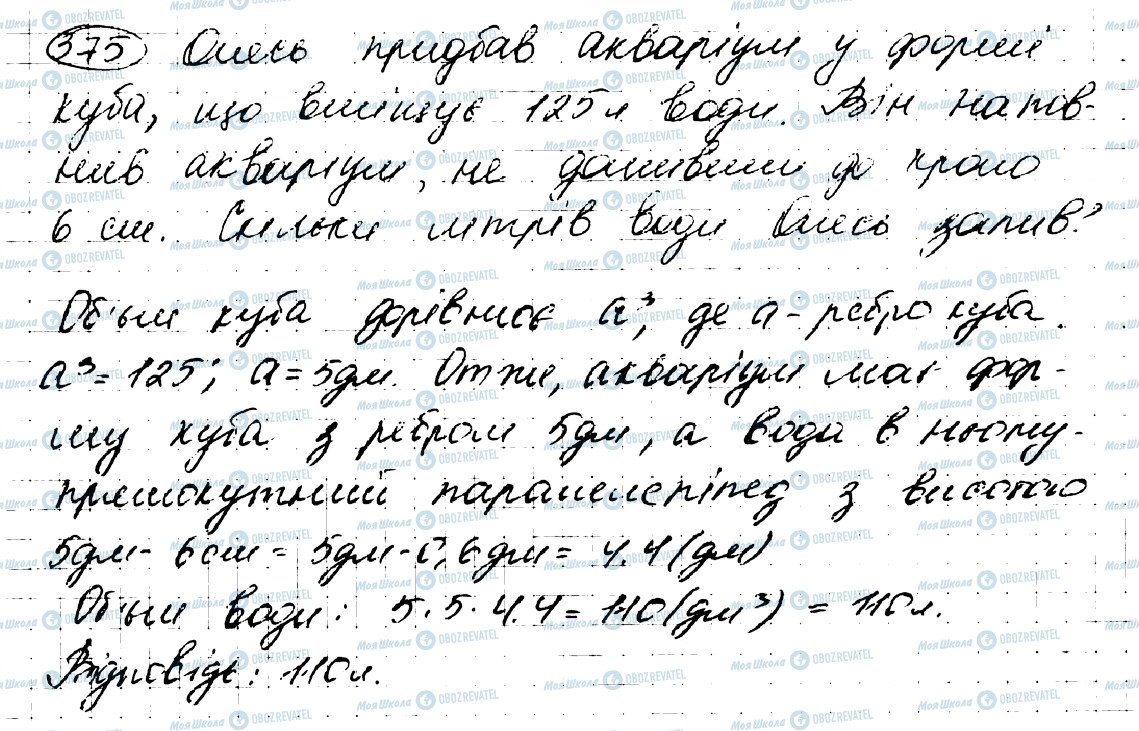 375 Олесь придбав акваріум у формі
куба, що вміщує 125 л води. Він напов-
нив акваріум, не доливши до краю
6 см. Скільки літрів води Олесь залив?
Об'єм куба дорівнює a³, де a - ребро куба.
a³ = 125; a = 5дм. Отже, акваріум має фор-
му куба з ребром 5дм, а вода в ньому -
прямокутний паралелепіпед з висотою
5дм - 6см = 5дм - 0,6дм = 4.4 (дм)
Об'єм води: 5 · 5 · 4.4 = 110 (дм³) = 110л.
Відповідь: 110л.